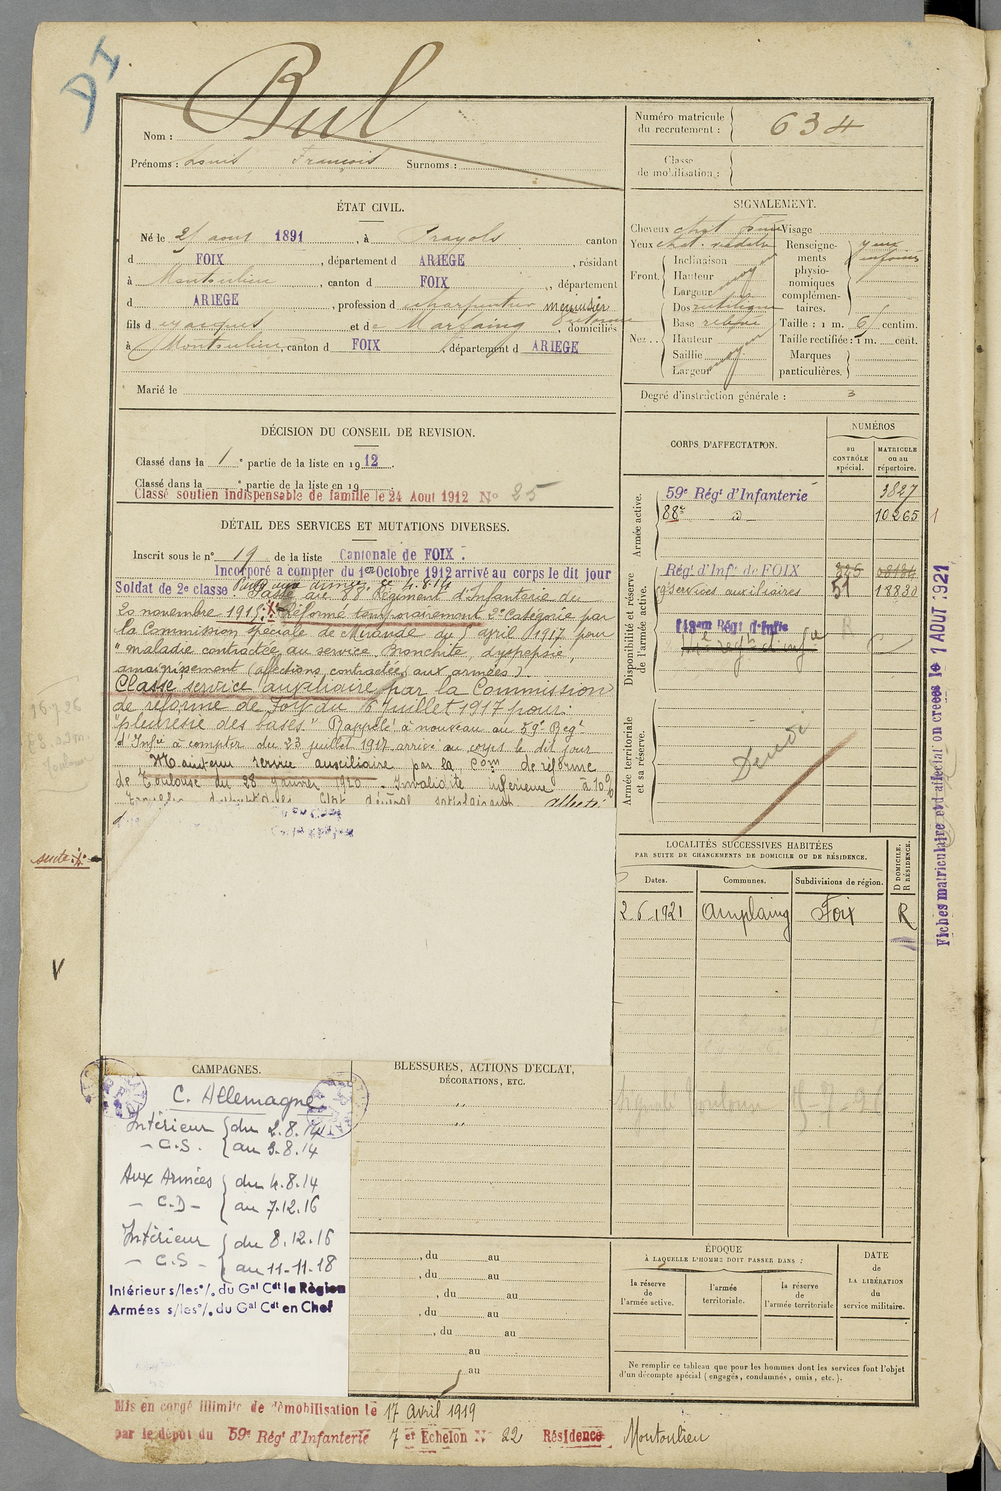 DI
Bul
Nom :
Prénoms : Louis François Surnoms :
Numéro matricule
du recrutement : 634
Classe
de mobilisation :
ÉTAT CIVIL.
Né le 25 aout 1891, à Prayols canton
d FOIX, département d ARIEGE, résidant
à Montoulieu, canton d FOIX, département
d ARIEGE, profession d charpentier menuisier
fils d Jacques et de Marfaing, domiciliés
à Montoulieu, canton d FOIX, département d ARIEGE
Marié le
SIGNALEMENT.
Cheveux chat
Yeux chat.
Front.
Inclinaison
Hauteur
Largeur moyen
Nez :
Dos rectiligne
Base
Hauteur
Saillie
Largeur moyen
Visage
Renseigne-
ments
physio-
nomiques
complémen-
taires.
yeux
Taille : 1 m. 65 centim.
Taille rectifiée : 1 m. cent.
Marques
particulières.
Degré d'instruction générale : 3
DÉCISION DU CONSEIL DE REVISION.
Classé dans la 1e partie de la liste en 1912.
Classé dans la e partie de la liste en 19
Classé soutien indispensable de famille le 24 Aout 1912 No 25
DÉTAIL DES SERVICES ET MUTATIONS DIVERSES.
Inscrit sous le no 19 de la liste Cantonale de FOIX.
Incorporé a compter du 1er Octobre 1912 arrivé au corps le dit jour
Soldat de 2e classe Parti aux armées le 4.8.14
Passé au 88e Régiment d'Infanterie du
20 novembre 1915. Réformé temporairement 2e Catégorie par
la Commission spéciale de Mirande du 5 avril 1917 pour
"maladie contractée au service, Bronchite, dyspepsie,
amaigrissement (affections contractées aux armées).
Classé service auxiliaire par la Commission
de réforme de Foix du 6 Juillet 1917 pour:
"pleurésie des bases". Rappelé à nouveau au 59e Régt
d'Infie à compter du 23 juillet 1917 arrivé au corps le dit jour
Maintenu service auxiliaire par la Com de réforme
de Toulouse du 28 janvier 1920. Invalidité inférieure à 10%
état général satisfaisant
suite
V
CORPS D'AFFECTATION.
NUMÉROS
au
CONTRÔLE
spécial.
MATRICULE
ou au
répertoire.
Armée active.
59e Régt d'Infanterie 3827
88e _ d_ 10265
1
Disponibilité et réserve
de l'armée active.
Régt d'Infie de FOIX
Services auxiliaires 51 18830
Armée territoriale
et sa réserve.
Fiches matriculaire et d'affectation créées le 1 AOUT 1921
LOCALITÉS SUCCESSIVES HABITÉES
PAR SUITE DE CHANGEMENTS DE DOMICILE OU DE RÉSIDENCE.
Dates. Communes. Subdivisions de région. D DOMICILE. R RÉSIDENCE.
2.6.1921 Amplaing Foix R
CAMPAGNES.
C. Allemagne
Intérieur du 2.8.14
- C.S. au 3.8.14
Aux Armées du 4.8.14
- C.D - au 7.12.16
Intérieur du 8.12.16
- C.S - au 11-11-18
Intérieur s/les o/. du Gal Cdt la Région
Armées s/les o/. du Gal Cdt en Chef
BLESSURES, ACTIONS D'ECLAT,
DÉCORATIONS, ETC.
"
"
, du au
, du au
, du au
, du au
, du au
au
au
ÉPOQUE
À LAQUELLE L'HOMME DOIT PASSER DANS :
la réserve
de
l'armée active.
l'armée
territoriale.
la réserve
de
l'armée territoriale
DATE
de
LA LIBÉRATION
du
service militaire.
Ne remplir ce tableau que pour les hommes dont les services font l'objet
d'un décompte spécial (engagés, condamnés, omis, etc.).
Mis en congé illimité de démobilisation le 17 Avril 1919
par le dépôt du 59e Régt d'Infanterie 7 er Echelon No 22 Résidence Montoulieu